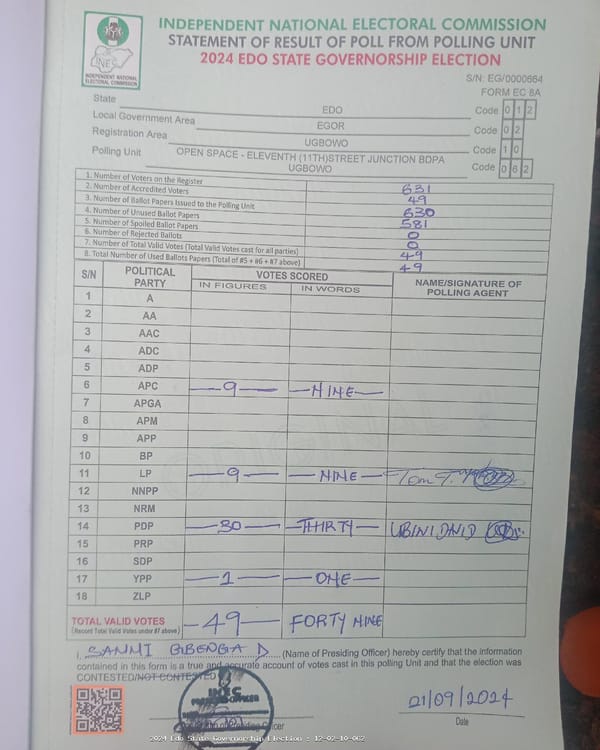 INDEPENDENT NATIONAL ELECTORAL COMMISSION
STATEMENT OF RESULT OF POLL FROM POLLING UNIT
2024 EDO STATE GOVERNORSHIP ELECTION
INEC
INDEPENDENT NATIONAL
ELECTORAL COMMISSION
S/N: EG/0000664
FORM EC 8A
State EDO Code 0 1 2
Local Government Area EGOR Code 0 2
Registration Area UGBOWO Code 1 0
Polling Unit OPEN SPACE - ELEVENTH (11TH)STREET JUNCTION BDPA UGBOWO Code 0 6 2
1. Number of Voters on the Register 631
2. Number of Accredited Voters 49
3. Number of Ballot Papers Issued to the Polling Unit 630
4. Number of Unused Ballot Papers 581
5. Number of Spoiled Ballot Papers 0
6. Number of Rejected Ballots 0
7. Number of Total Valid Votes (Total Valid Votes cast for all parties) 49
8. Total Number of Used Ballots Papers (Total of #5 + #6 + #7 above) 49
S/N POLITICAL PARTY VOTES SCORED NAME/SIGNATURE OF POLLING AGENT
IN FIGURES IN WORDS
1 A
2 AA
3 AAC
4 ADC
5 ADP
6 APC 9 NINE
7 APGA
8 APM
9 APP
10 BP
11 LP 9 NINE Tom T.
12 NNPP
13 NRM
14 PDP 30 THIRTY
15 PRP
16 SDP
17 YPP 1 ONE
18 ZLP
TOTAL VALID VOTES 49 FORTY NINE
(Record Total Valid Votes under #7 above)
I, SANMI GBENGA D (Name of Presiding Officer) hereby certify that the information
contained in this form is a true and accurate account of votes cast in this polling Unit and that the election was
CONTESTED/NOT CONTESTED
INEC
PRESIDING OFFICER
21/09/2024
Date
2024 Edo State Governorship Election : 12-02-10-062